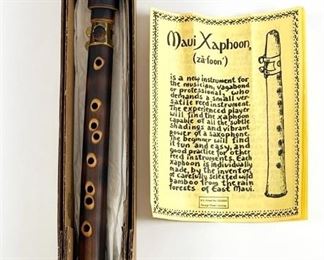 Maui Xaphoon
(zä·foon')
is a new instrument for
the musician, vagabond
or professional, who
demands a small ver-
satile reed instrument.
The experienced player
will find the xaphoon
capable of all the subtle
shadings and vibrant
power of a saxophone.
The beginner will find
it fun and easy, and
good practice for other
reed instruments. Each
xaphoon is individually
made, by the inventor
of carefully selected wild
bamboo from the rain
forests of East Maui.